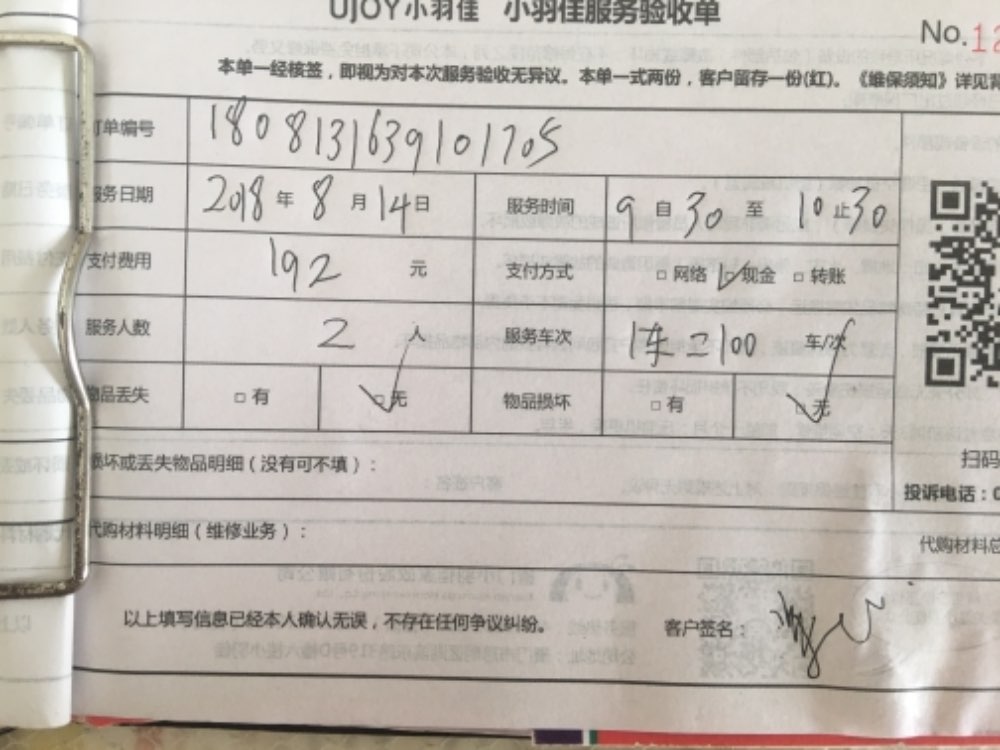 UJOY小羽佳 小羽佳服务验收单
No.12
本单一经核签，即视为对本次服务验收无异议。本单一式两份，客户留存一份(红)。《维保须知》详见背
订单编号 180813163910170S
服务日期 2018年8月14日 服务时间 9自30至10止30
支付费用 192元 支付方式 □网络 □现金 □转账
服务人数 2 服务车次 1车=100 车/次
物品丢失 □有 □无 物品损坏 □有 □无
损坏或丢失物品明细（没有可不填）：
扫码
投诉电话：0
代购材料明细（维修业务）：
代购材料总
以上填写信息已经本人确认无误，不存在任何争议纠纷。 客户签名：